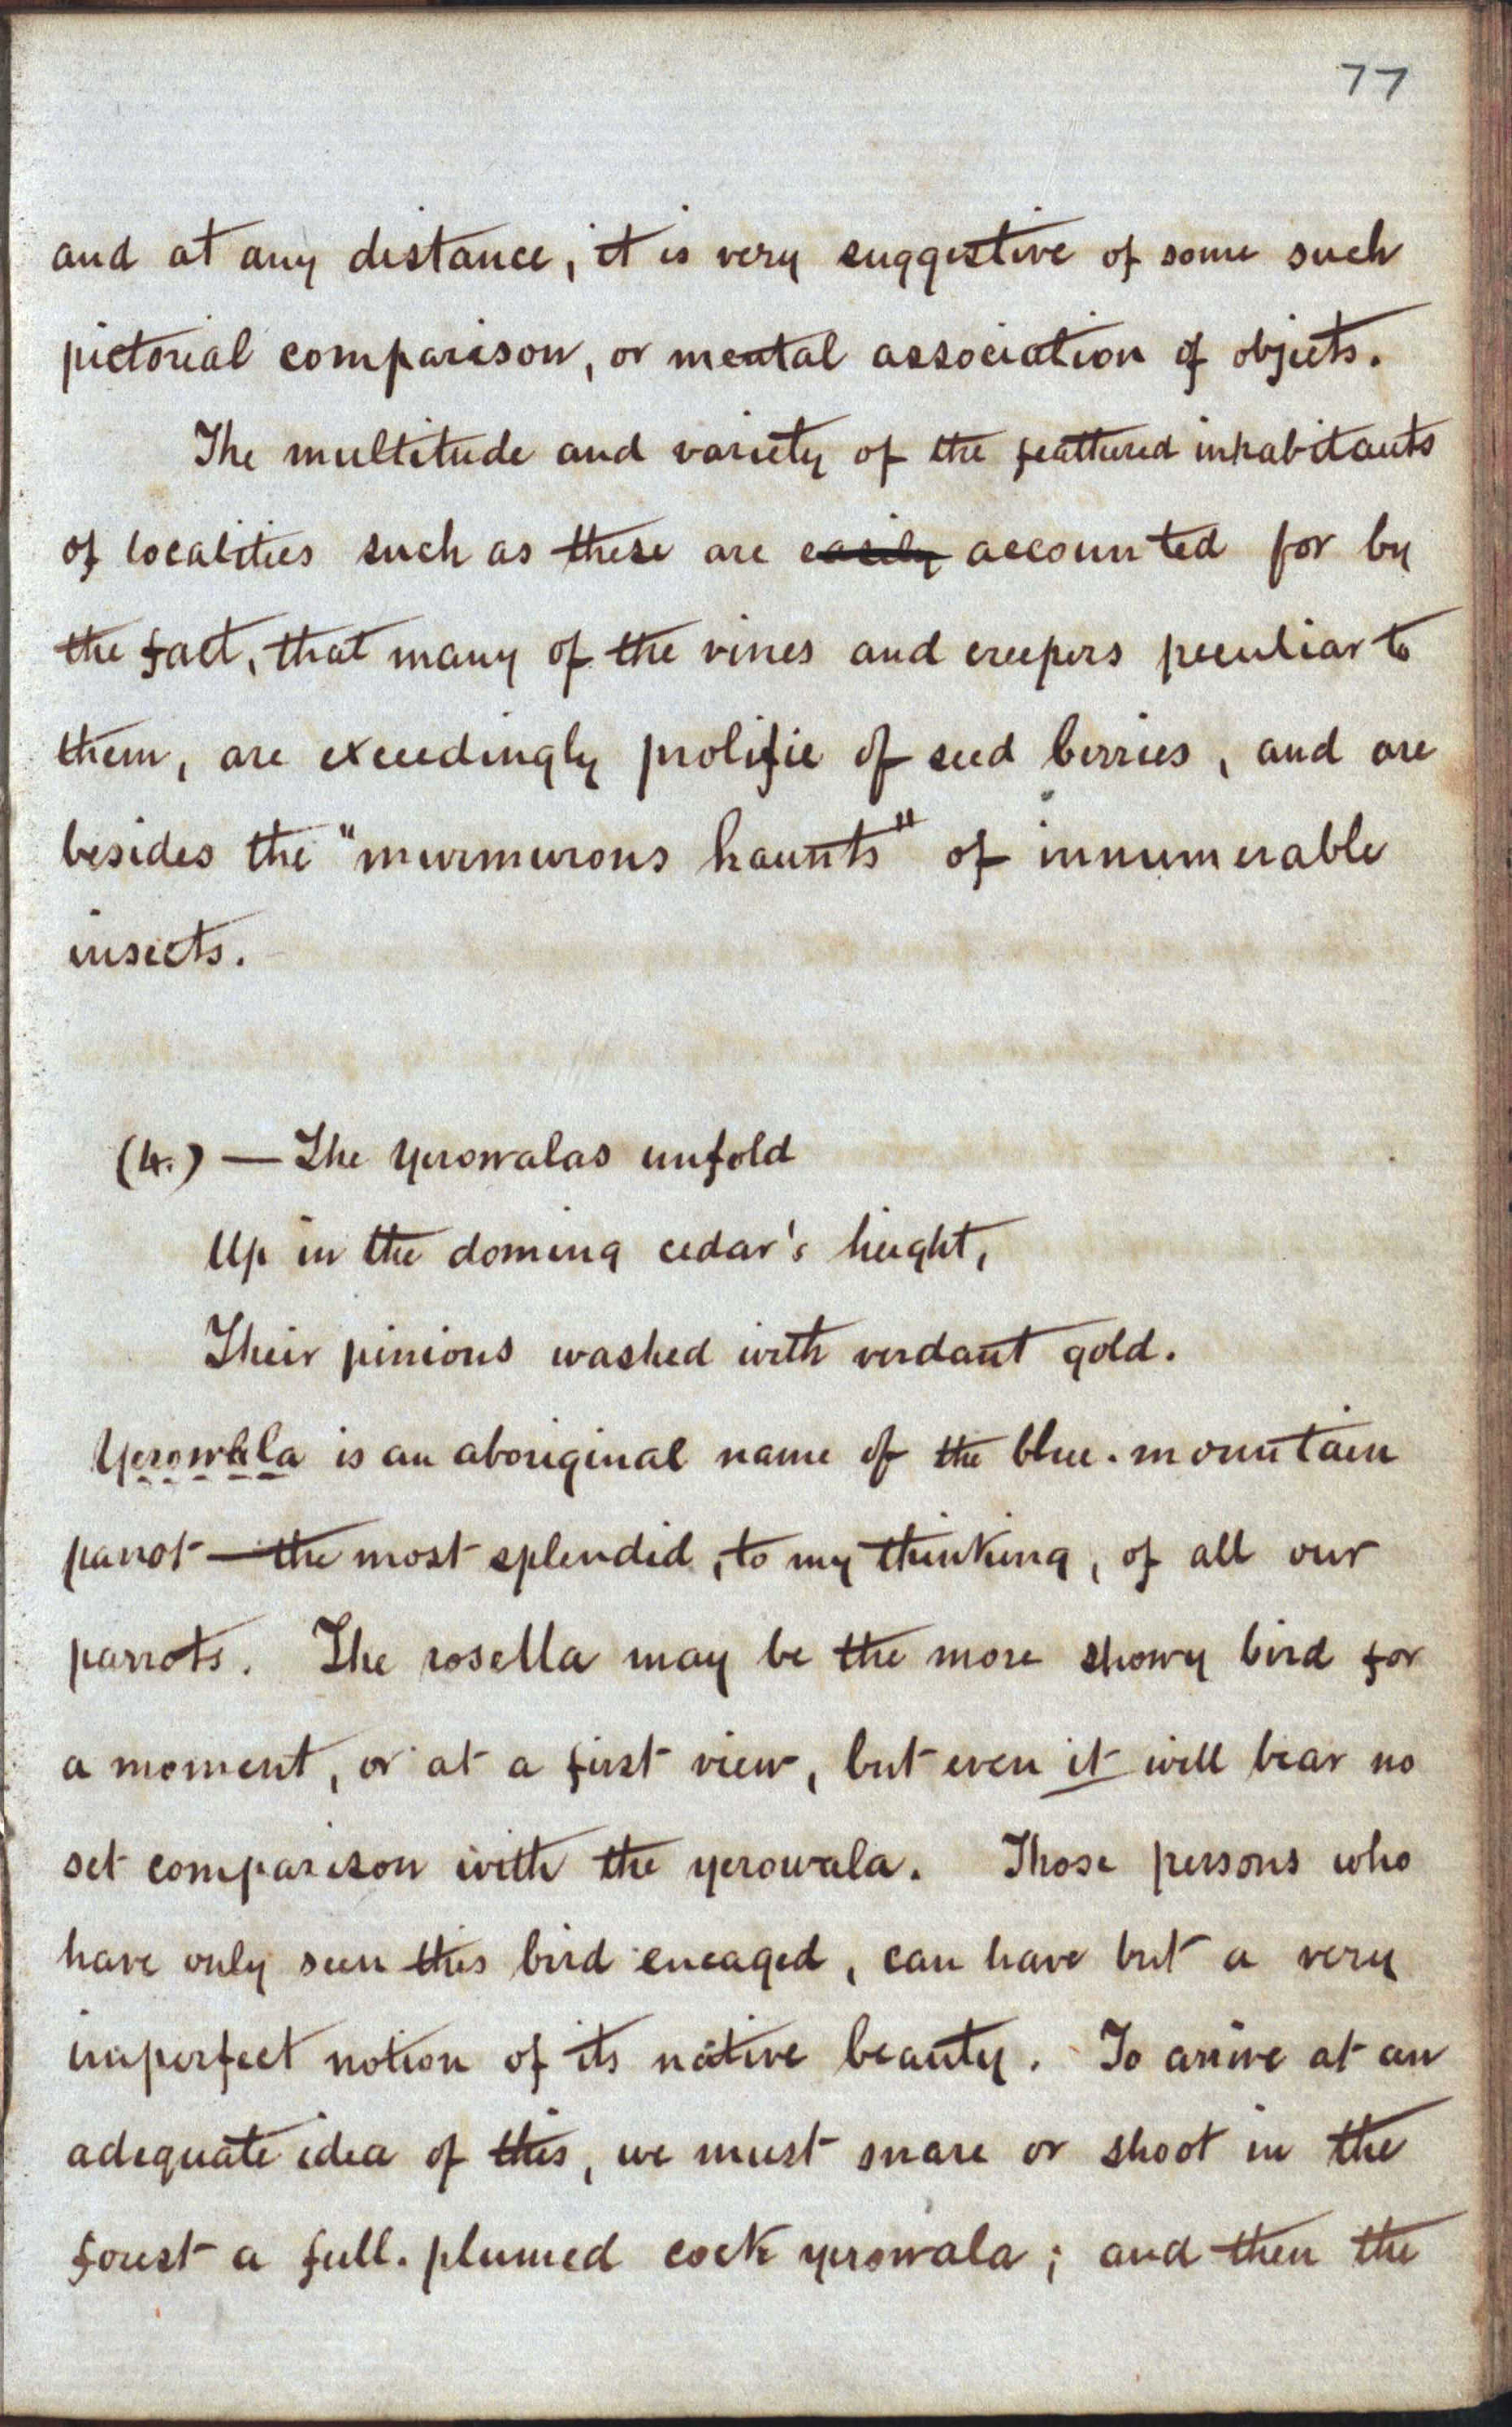 77
and at any distance, it is very suggestive of some such
pictorial comparison, or mental association of objects.
The multitude and variety of the feathered inhabitants
of localities such as these are easily accounted for by
the fact, that many of the vines and creepers peculiar to
them, are exceedingly prolific of seed berries, and are
besides the "murmurous haunts" of innumerable
insects.
(4.) — The Yerowalas unfold
Up in the doming cedar's height,
Their pinions washed with verdant gold.
Yerowala is an aboriginal name of the blue-mountain
parrot — the most splendid, to my thinking, of all our
parrots. The rosella may be the more showy bird for
a moment, or at a first view, but even it will bear no
set comparison with the yerowala. Those persons who
have only seen this bird encaged, can have but a very
imperfect notion of its native beauty. To arrive at an
adequate idea of this, we must snare or shoot in the
forest a full-plumed cock yerowala; and then the